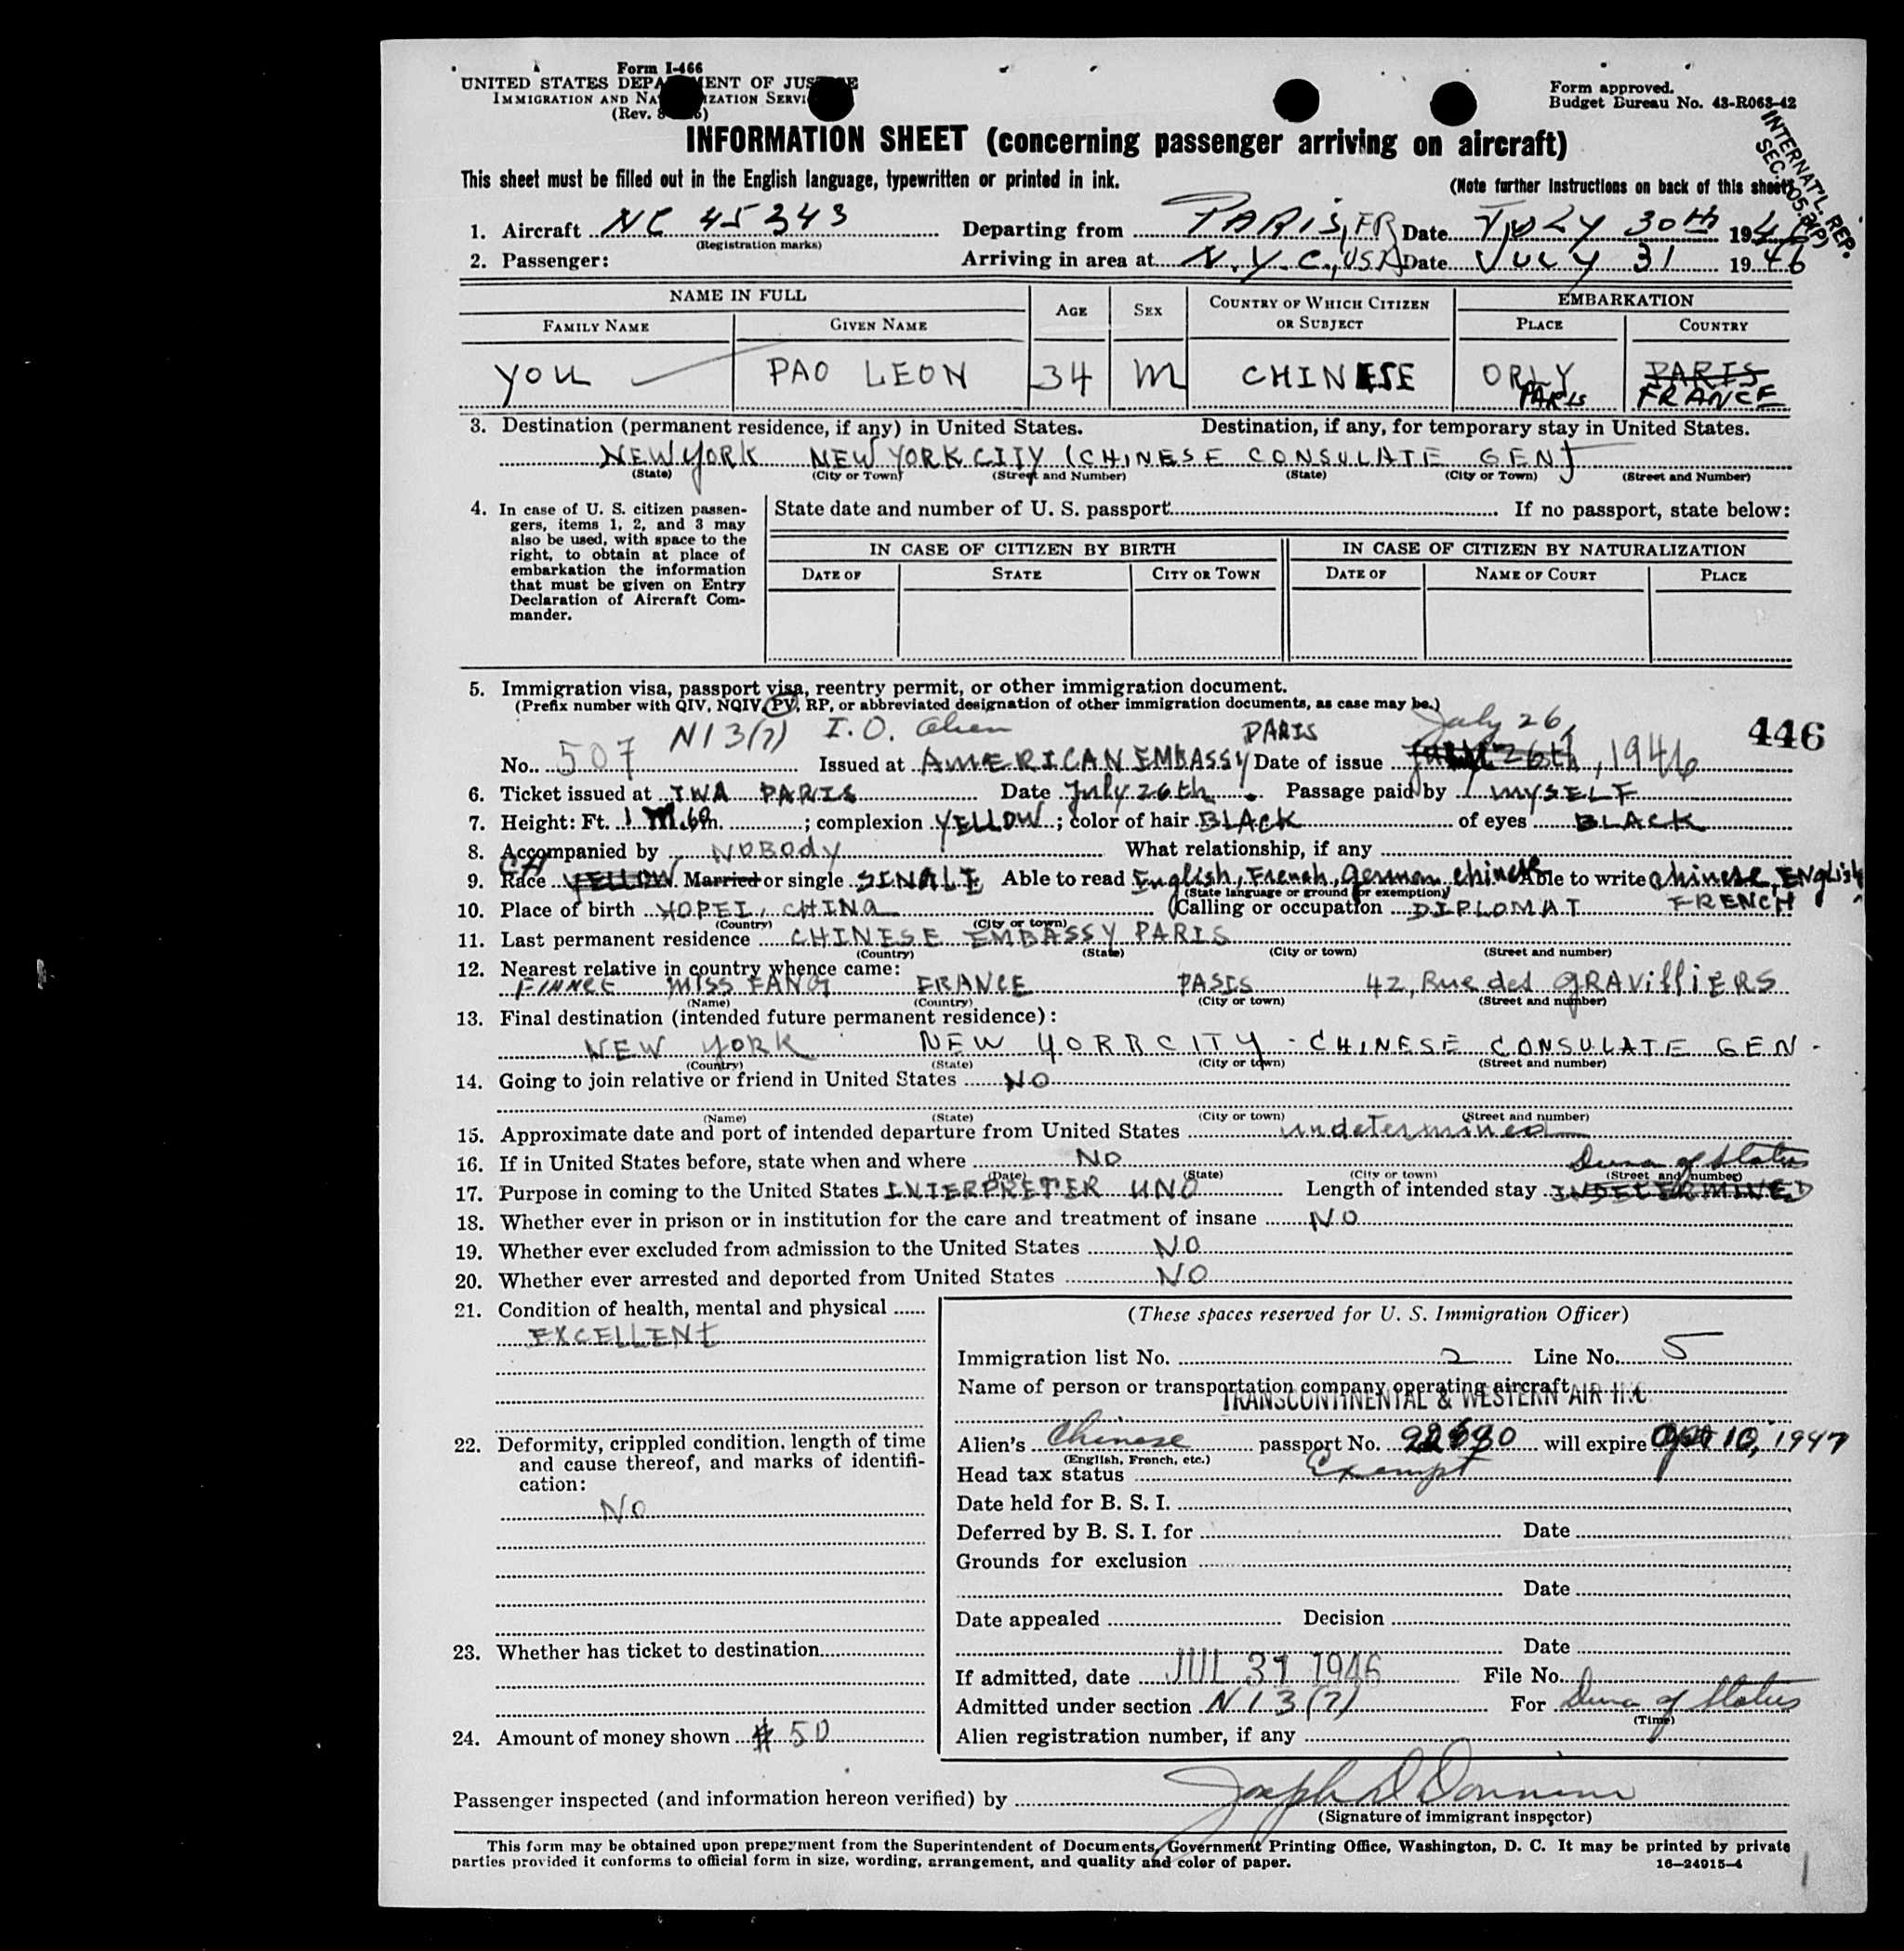 Form I-466
UNITED STATES DEPARTMENT OF JUSTICE
IMMIGRATION AND NATURALIZATION SERVICE
(Rev.
Form approved.
Budget Bureau No. 43-R063-42
INTERNAT'L. REP.
INFORMATION SHEET (concerning passenger arriving on aircraft)
This sheet must be filled out in the English language, typewritten or printed in ink.
(Note further instructions on back of this sheet)
1. Aircraft NC 45343 Departing from PARIS, FR Date JULY 30th 1946
(Registration marks)
2. Passenger: Arriving in area at N.Y.C., USA Date JULY 31 1946
NAME IN FULL AGE SEX COUNTRY OF WHICH CITIZEN OR SUBJECT EMBARKATION
FAMILY NAME GIVEN NAME PLACE COUNTRY
YOU PAO LEON 34 M CHINESE ORLY PARIS PARIS FRANCE
3. Destination (permanent residence, if any) in United States. Destination, if any, for temporary stay in United States.
NEW YORK NEW YORK CITY (CHINESE CONSULATE GEN)
(State) (City or Town) (Street and Number) (State) (City or Town) (Street and Number)
4. In case of U. S. citizen passengers, items 1, 2, and 3 may also be used, with space to the right, to obtain at place of embarkation the information that must be given on Entry Declaration of Aircraft Commander.
State date and number of U. S. passport If no passport, state below:
IN CASE OF CITIZEN BY BIRTH IN CASE OF CITIZEN BY NATURALIZATION
DATE OF STATE CITY OR TOWN DATE OF NAME OF COURT PLACE
5. Immigration visa, passport visa, reentry permit, or other immigration document.
(Prefix number with QIV, NQIV, PV, RP, or abbreviated designation of other immigration documents, as case may be.)
N13(7) I.O. PARIS July 26, 446
No. 507 Issued at AMERICAN EMBASSY Date of issue 26th, 1946
6. Ticket issued at TWA PARIS Date July 26th Passage paid by MYSELF
7. Height: Ft. 1 m.60 ; complexion YELLOW ; color of hair BLACK of eyes BLACK
8. Accompanied by NOBODY What relationship, if any
CH
9. Race YELLOW Married or single SINGLE Able to read English, French, German, chinese Able to write chinese, ENGlish
(State language or ground for exemption)
FRENCH
10. Place of birth HOPEI, CHINA Calling or occupation DIPLOMAT
(Country) (City or town)
11. Last permanent residence CHINESE EMBASSY PARIS
(Country) (State) (City or town) (Street and number)
12. Nearest relative in country whence came:
MISS FANG FRANCE PARIS 42, Rue des GRAVilliERS
(Name) (Country) (City or town) (Street and number)
13. Final destination (intended future permanent residence):
NEW YORK NEW YORK CITY - CHINESE CONSULATE GEN.
(Country) (State) (City or town) (Street and number)
14. Going to join relative or friend in United States NO
(Name) (State) (City or town) (Street and number)
15. Approximate date and port of intended departure from United States undetermined
16. If in United States before, state when and where NO
(Date) (State) (City or town) (Street and number)
Dura of Status
17. Purpose in coming to the United States INTERPRETER UNO Length of intended stay INDETERMINED
18. Whether ever in prison or in institution for the care and treatment of insane NO
19. Whether ever excluded from admission to the United States NO
20. Whether ever arrested and deported from United States NO
21. Condition of health, mental and physical
EXCELLENT
22. Deformity, crippled condition, length of time and cause thereof, and marks of identification:
No
23. Whether has ticket to destination
24. Amount of money shown $ 50
(These spaces reserved for U. S. Immigration Officer)
Immigration list No. 2 Line No. 5
Name of person or transportation company operating aircraft
TRANSCONTINENTAL & WESTERN AIR INC
Alien's Chinese passport No. will expire 10, 1947
(English, French, etc.)
Head tax status Exempt
Date held for B. S. I.
Deferred by B. S. I. for Date
Grounds for exclusion
Date
Date appealed Decision
Date
If admitted, date JUL 31 1946 File No.
Admitted under section N13(7) For Dura of Status
(Time)
Alien registration number, if any
Passenger inspected (and information hereon verified) by Joseph D
(Signature of immigrant inspector)
This form may be obtained upon prepayment from the Superintendent of Documents, Government Printing Office, Washington, D. C. It may be printed by private
parties provided it conforms to official form in size, wording, arrangement, and quality and color of paper.
16—24915-4